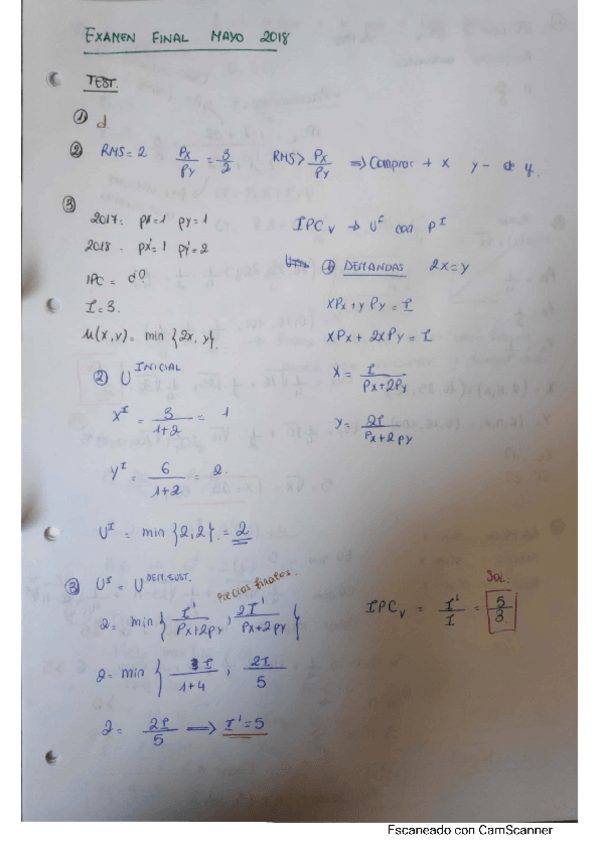 EXAMEN FINAL MAYO 2018
TEST.
① d.
② RMS = 2 Px/Py = 3/2 RMS > Px/Py ⇒ Comprar + x y - de y.
③
2017: px=1 py=1
2018. px'=1 py'=2
IPC = d?
I = 3.
u(x,y) = min {2x, y}
IPCv → U^I con P^I
① DEMANDAS 2x = y
xPx + yPy = I
xPx + 2xPy = I
x = I / Px+2Py
y = 2I / Px+2py
② U^INICIAL
x^I = 3 / 1+2 = 1
y^I = 6 / 1+2 = 2.
U^I = min {2,2} = 2
③ U^I = U^DEM.SUST.
Precios finales.
2 = min { I' / Px+2py , 2I' / Px+2py }
2 = min { I / 1+4 , 2I / 5
2 = 2I / 5 ⟹ I' = 5
SOL:
IPCv = I' / I = 5/3
Escaneado con CamScanner